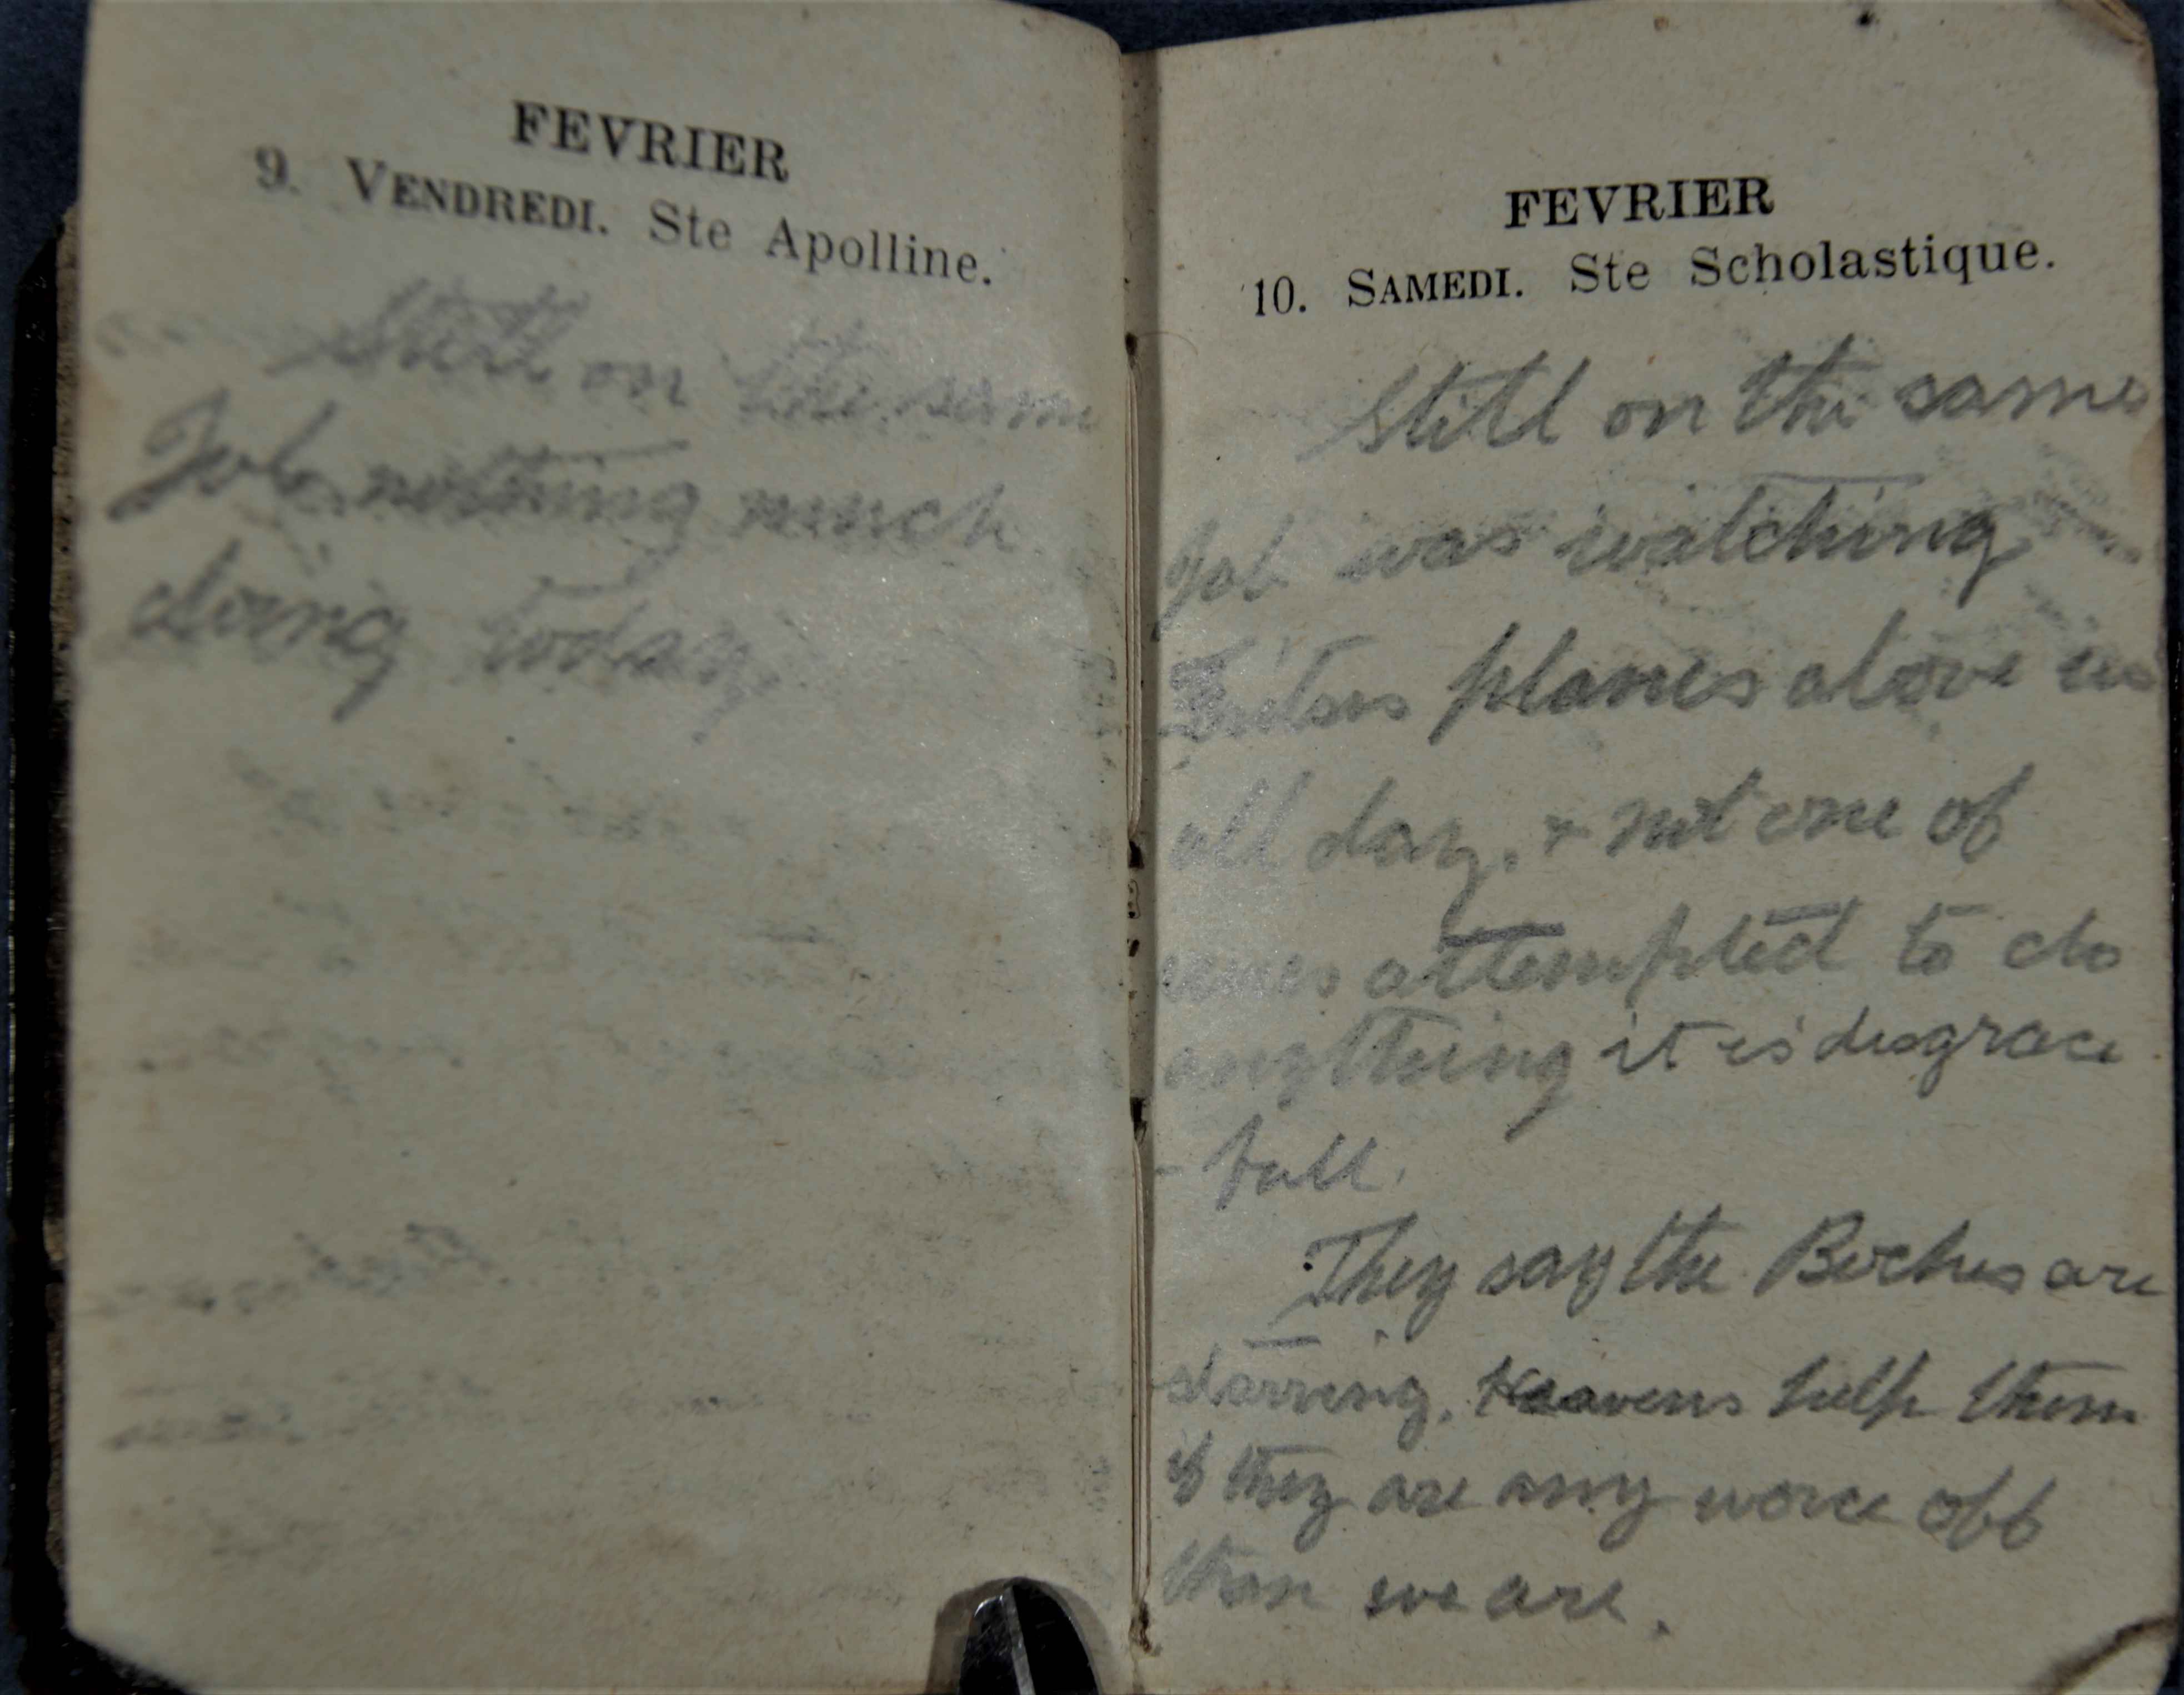 FEVRIER
9. VENDREDI. Ste Apolline.
Still on the same
Job, nothing much
doing today.
FEVRIER
10. SAMEDI. Ste Scholastique.
Still on the same
Job was watching
planes above us
all day, + not one of
attempted to do
anything it is disgrace
- full.
They say the Boches are
starving, Heavens help them
if they are any worce off
than we are.